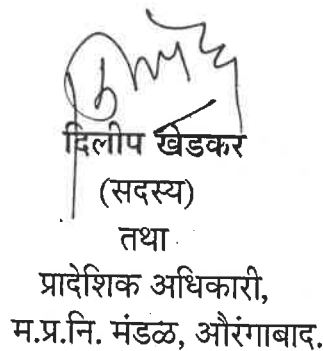 दिलीप खेडकर
(सदस्य)
तथा
प्रादेशिक अधिकारी,
म.प्र.नि. मंडळ, औरंगाबाद.